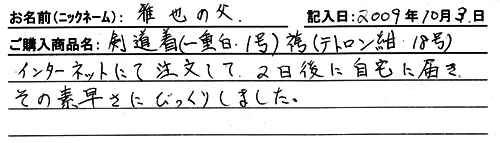 お名前(ニックネーム): 雅也の父. 記入日:2009年10月3日
ご購入商品名: 剣道着(一重白.1号) 袴(テトロン紺.18号)
インターネットにて注文して.2日後に自宅に届き.
その素早さにびっくりしました。